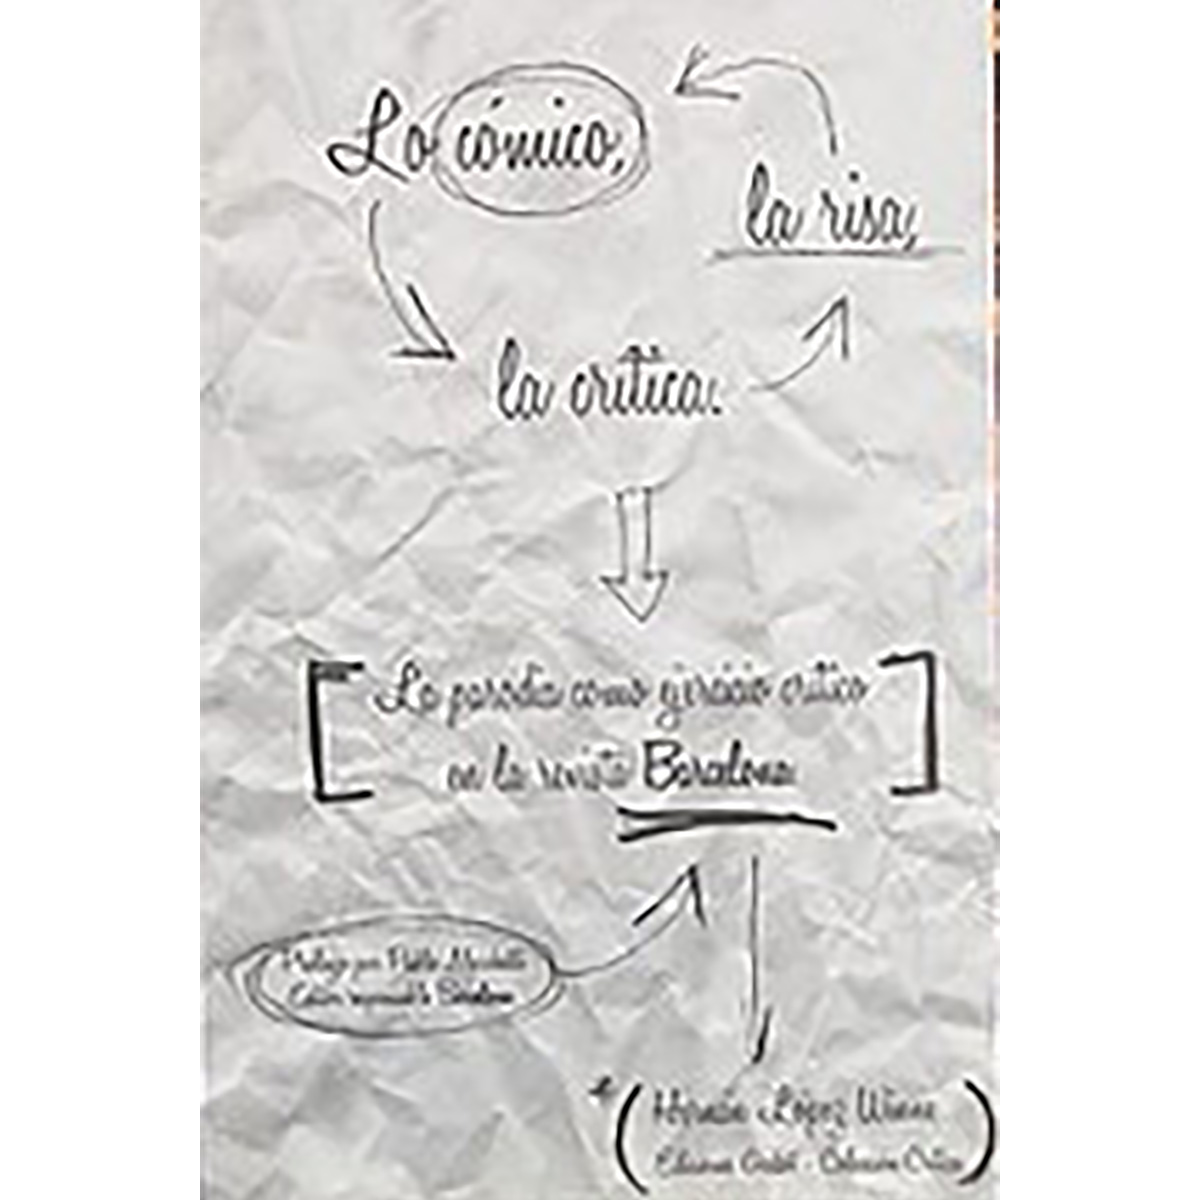 Lo cómico,
la risa,
la crítica.
La parodia como ejercicio crítico
en la revista Barcelona
Prólogo por Pablo Marchetti
Editor responsable Barcelona
* (Hernán López Winne
Ediciones Godot - Colección Crítica)